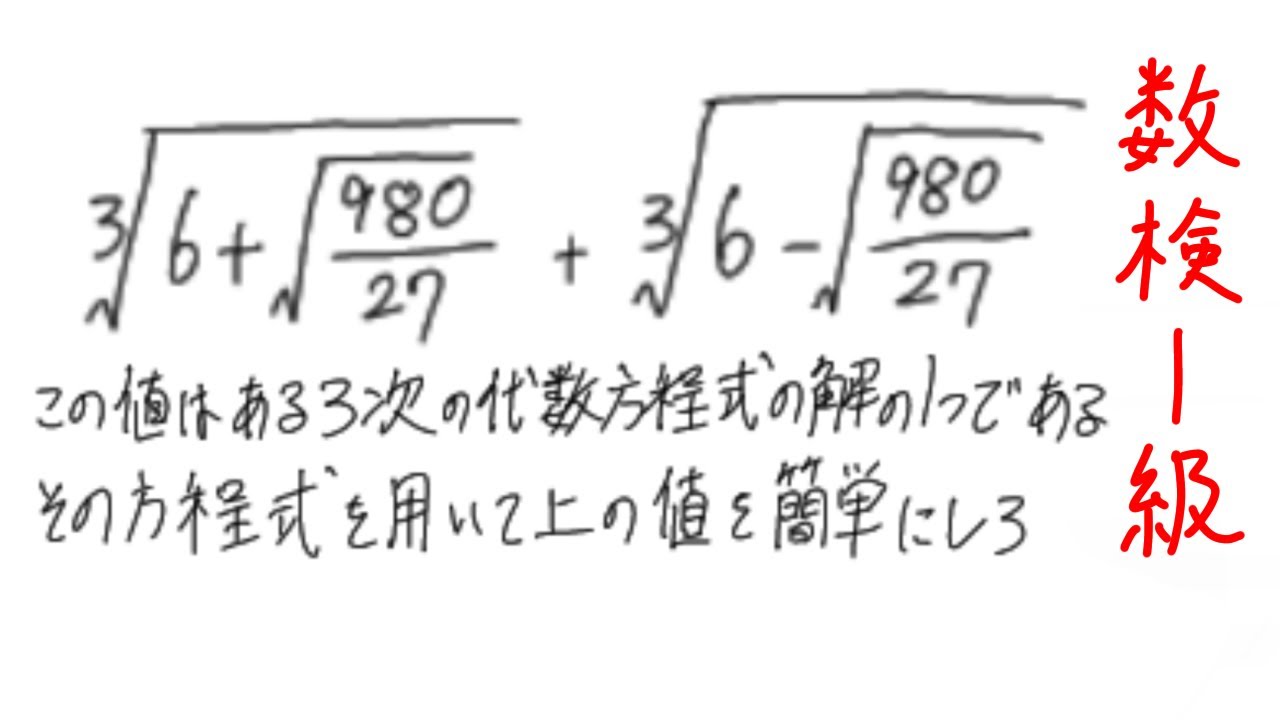 ∛(6+√(980/27)) + ∛(6-√(980/27))
この値はある3次の代数方程式の解の1つである
その方程式を用いて上の値を簡単にしろ
数検1級